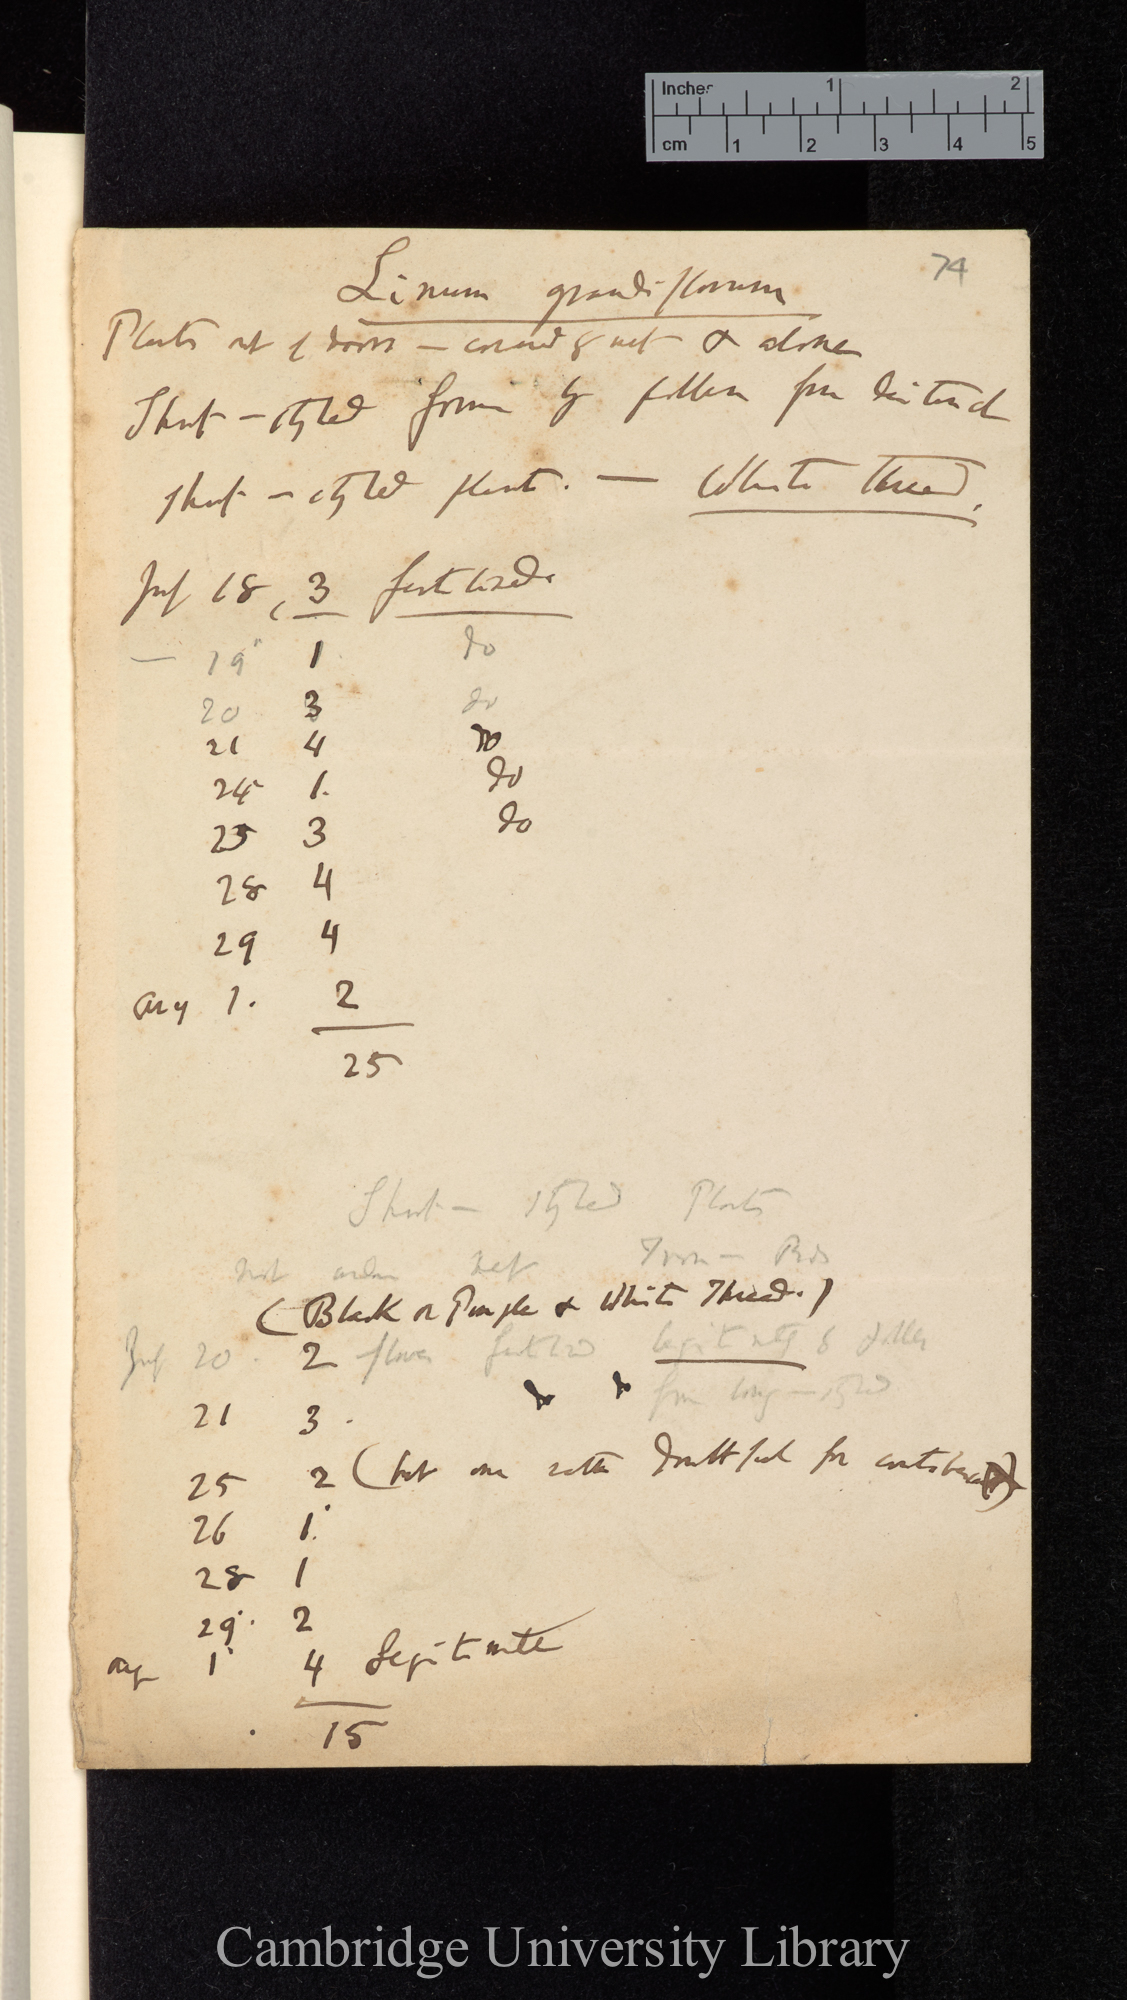 Inches 1 2
cm 1 2 3 4 5
74
Linum grandiflorum
Plants out of doors — covered by net & alone
Short-styled form by pollen from distinct
short-styled plant. — White thread.
July 18, 3 fertilised.
— 19 1 do
20 3 do
21 4 do
24 1. do
25 3 do
28 4
29 4
Aug 1. 2
25
Short-styled Plants
not under net
(Black or Purple & White Thread.)
July 20. 2 flowers fertilised legitimately by pollen
from long-styled
21 3. do do
25 2 (but one rather doubtful for
26 1.
28 1
29. 2
Aug 1 4 Legitimate
15
Cambridge University Library